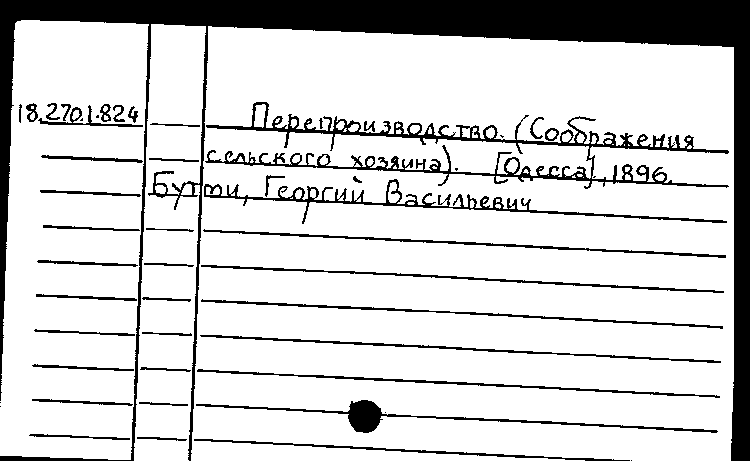 18.270.1.824 Перепроизводство. (Соображения
сельского хозяина). [Одесса], 1896.
Бутми, Георгий Васильевич